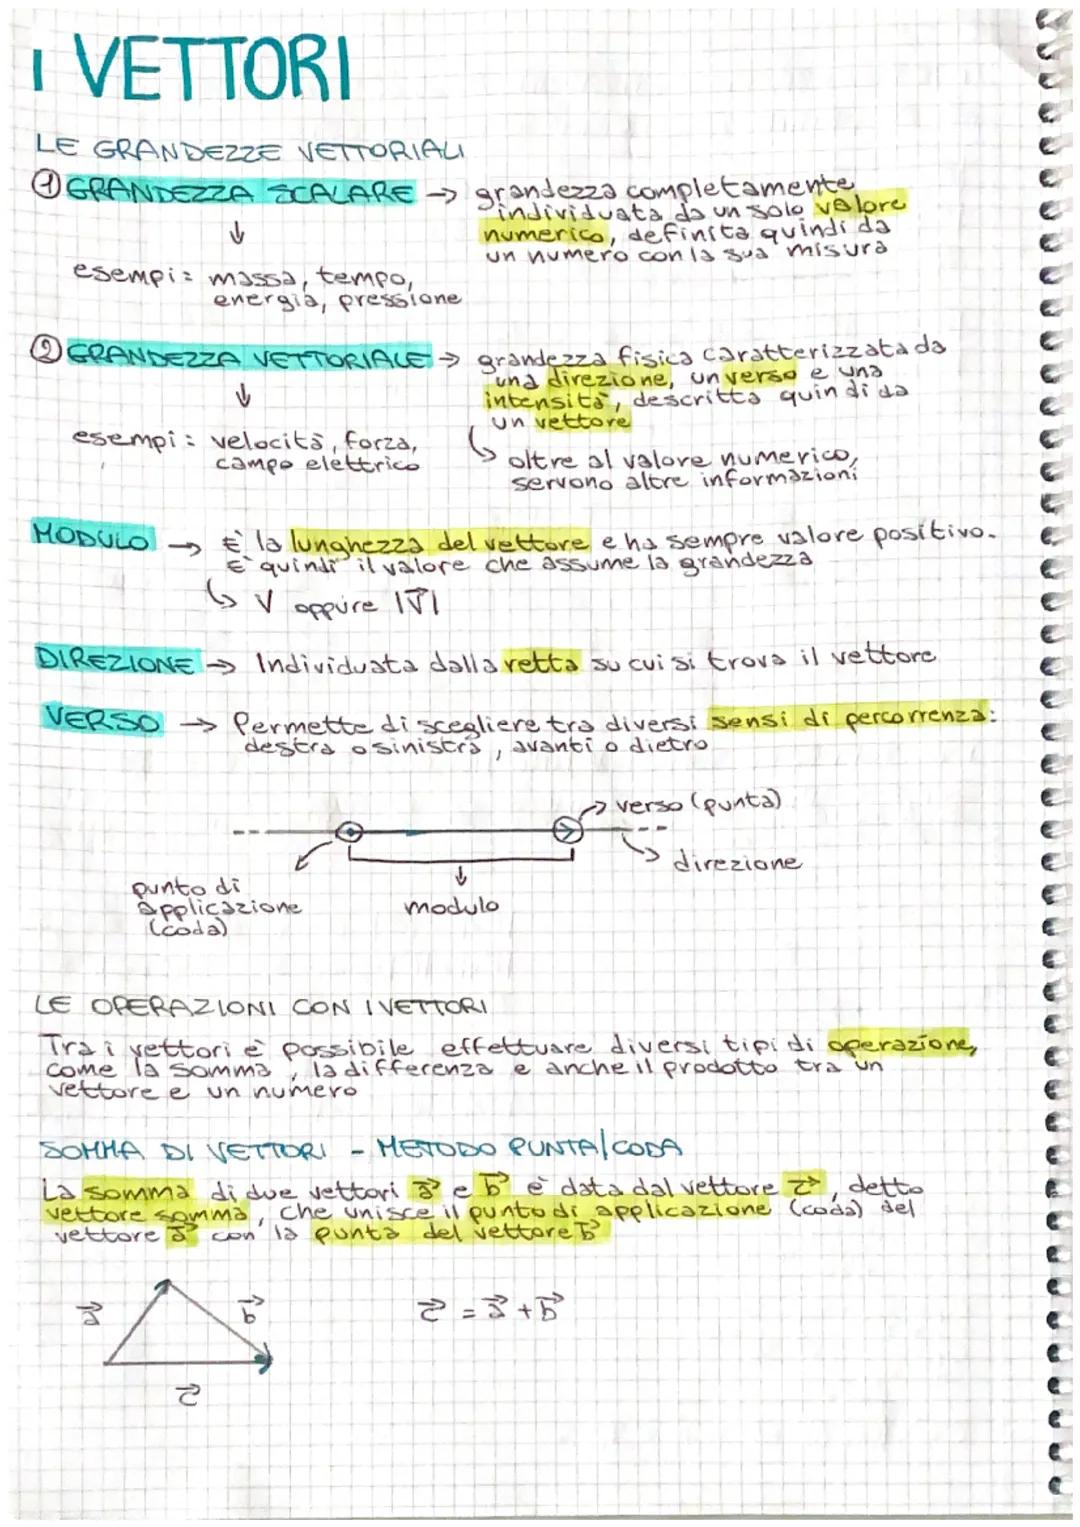 I VETTORI
LE GRANDEZZE VETTORIALI
① GRANDEZZA SCALARE → grandezza completamente
individuata da un solo valore
numerico, definita quindi da
un numero con la sua misura
↓
esempi: massa, tempo,
energia, pressione
② GRANDEZZA VETTORIALE → grandezza fisica caratterizzata da
una direzione, un verso e una
intensità, descritta quindi da
un vettore
↓
esempi: velocità, forza,
campo elettrico
↳ oltre al valore numerico,
servono altre informazioni
MODULO → È la lunghezza del vettore e ha sempre valore positivo.
È quindi il valore che assume la grandezza
↳ V oppure |V⃗|
DIREZIONE → Individuata dalla retta su cui si trova il vettore
VERSO → Permette di scegliere tra diversi sensi di percorrenza:
destra o sinistra, avanti o dietro
verso (punta)
direzione
punto di
applicazione
(coda)
modulo
LE OPERAZIONI CON I VETTORI
Tra i vettori è possibile effettuare diversi tipi di operazione,
come la somma, la differenza e anche il prodotto tra un
vettore e un numero
SOMMA DI VETTORI - METODO PUNTA/CODA
La somma di due vettori a⃗ e b⃗ è data dal vettore c⃗, detto
vettore somma, che unisce il punto di applicazione (coda) del
vettore a⃗ con la punta del vettore b⃗
a⃗
b⃗
c⃗ = a⃗ + b⃗
c⃗